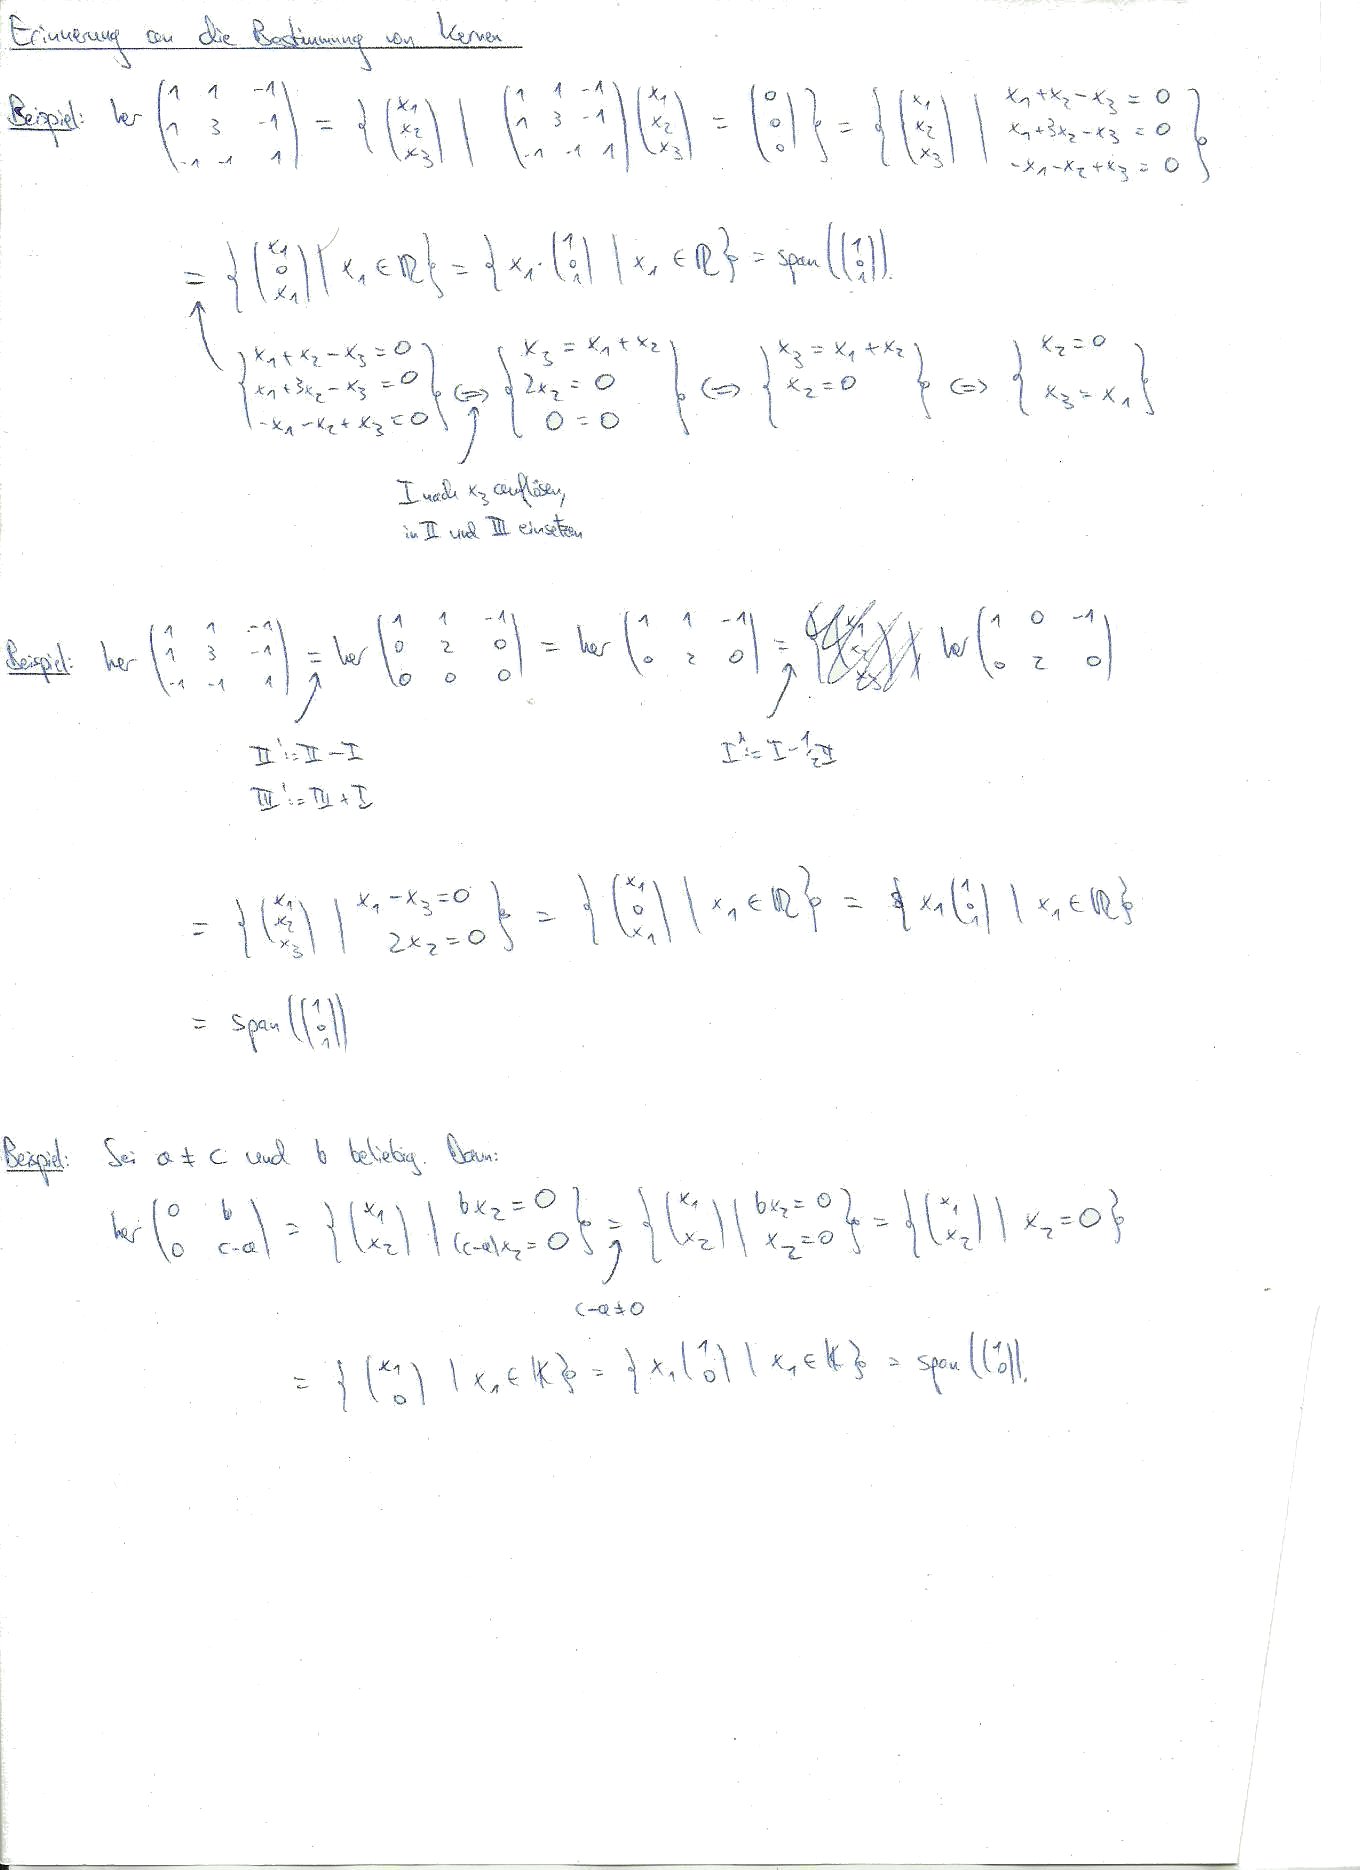 Erinnerung an die Bestimmung von Kernen
Beispiel: ker (1 1 -1; 1 3 -1; -1 -1 1) = { (x₁; x₂; x₃) | (1 1 -1; 1 3 -1; -1 -1 1) (x₁; x₂; x₃) = (0; 0; 0) } = { (x₁; x₂; x₃) | x₁+x₂-x₃ = 0; x₁+3x₂-x₃ = 0; -x₁-x₂+x₃ = 0 }
= { (x₁; 0; x₁) | x₁ ∈ ℝ } = { x₁· (1; 0; 1) | x₁ ∈ ℝ } = span((1; 0; 1)).
{ x₁+x₂-x₃=0; x₁+3x₂-x₃=0; -x₁-x₂+x₃=0 } ⇔ { x₃ = x₁+x₂; 2x₂ = 0; 0 = 0 } ⇔ { x₃ = x₁+x₂; x₂=0 } ⇔ { x₂=0; x₃ = x₁ }
I nach x₃ auflösen,
in II und III einsetzen
Beispiel: ker (1 1 -1; 1 3 -1; -1 -1 1) = ker (1 1 -1; 0 2 0; 0 0 0) = ker (1 1 -1; 0 2 0) = ker (1 0 -1; 0 2 0)
II' := II - I
III' := III + I
I' := I - ½II
= { (x₁; x₂; x₃) | x₁-x₃=0; 2x₂=0 } = { (x₁; 0; x₁) | x₁ ∈ ℝ } = { x₁ (1; 0; 1) | x₁ ∈ ℝ }
= span((1; 0; 1))
Beispiel: Sei a ≠ c und b beliebig. Dann:
ker (0 b; 0 c-a) = { (x₁; x₂) | bx₂ = 0; (c-a)x₂ = 0 } = { (x₁; x₂) | bx₂ = 0; x₂=0 } = { (x₁; x₂) | x₂=0 }
c-a≠0
= { (x₁; 0) | x₁ ∈ 𝕂 } = { x₁ (1; 0) | x₁ ∈ 𝕂 } = span((1; 0)).